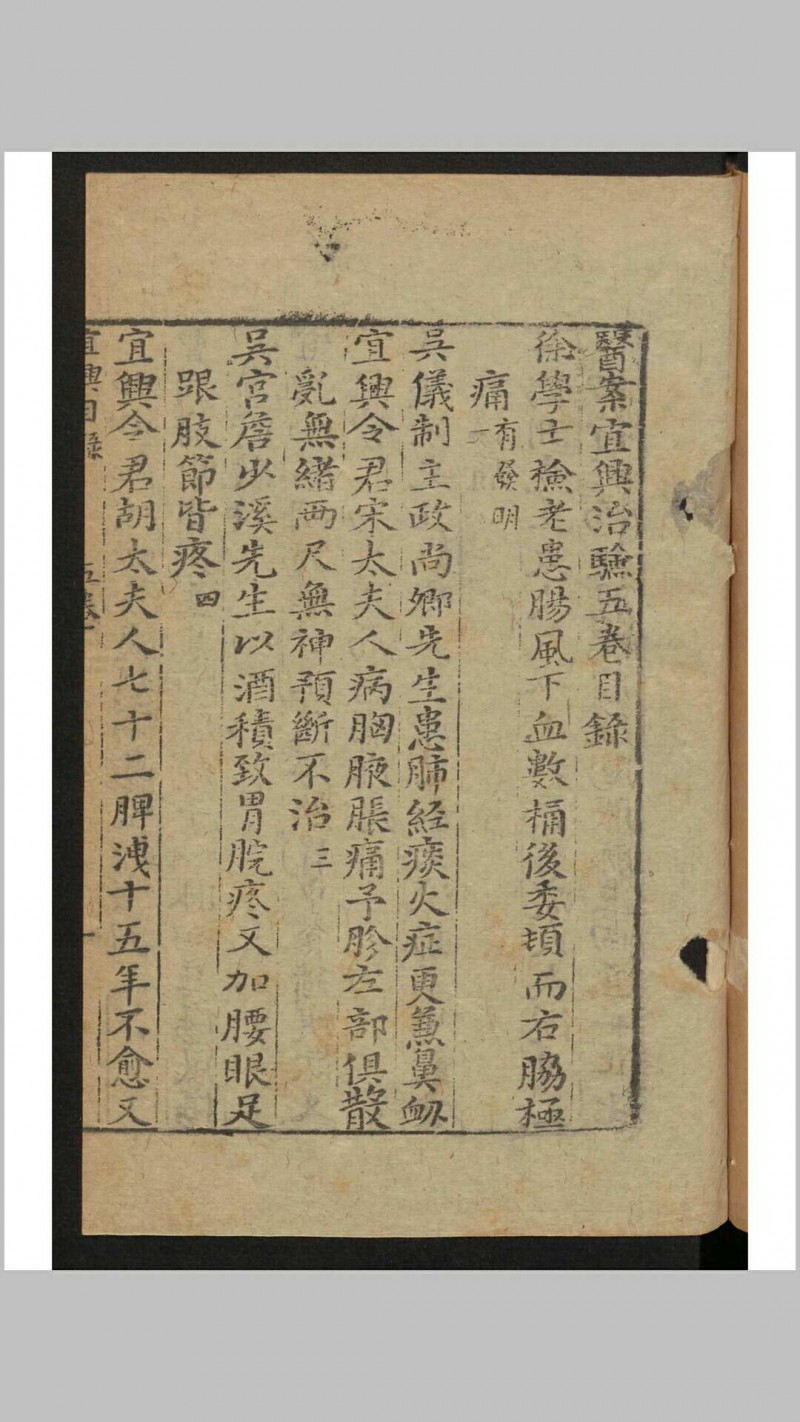 醫案宜興治驗五卷目錄
徐學士檢老患腸風下血數桶後委頓而右脇極
痛一有發明
吳儀制主政尚鄉先生患肺經痰火症更蕙鼻衂
宜興令君宋太夫人病胸腋脹痛予胗左部俱散
亂無緒兩尺無神預斷不治三
吳宮詹少溪先生以酒積致胃脘疼又加腰眼足
跟肢節皆疼四
宜興令君胡太夫人七十二脾洩十五年不愈又
宜興目錄 五卷 一